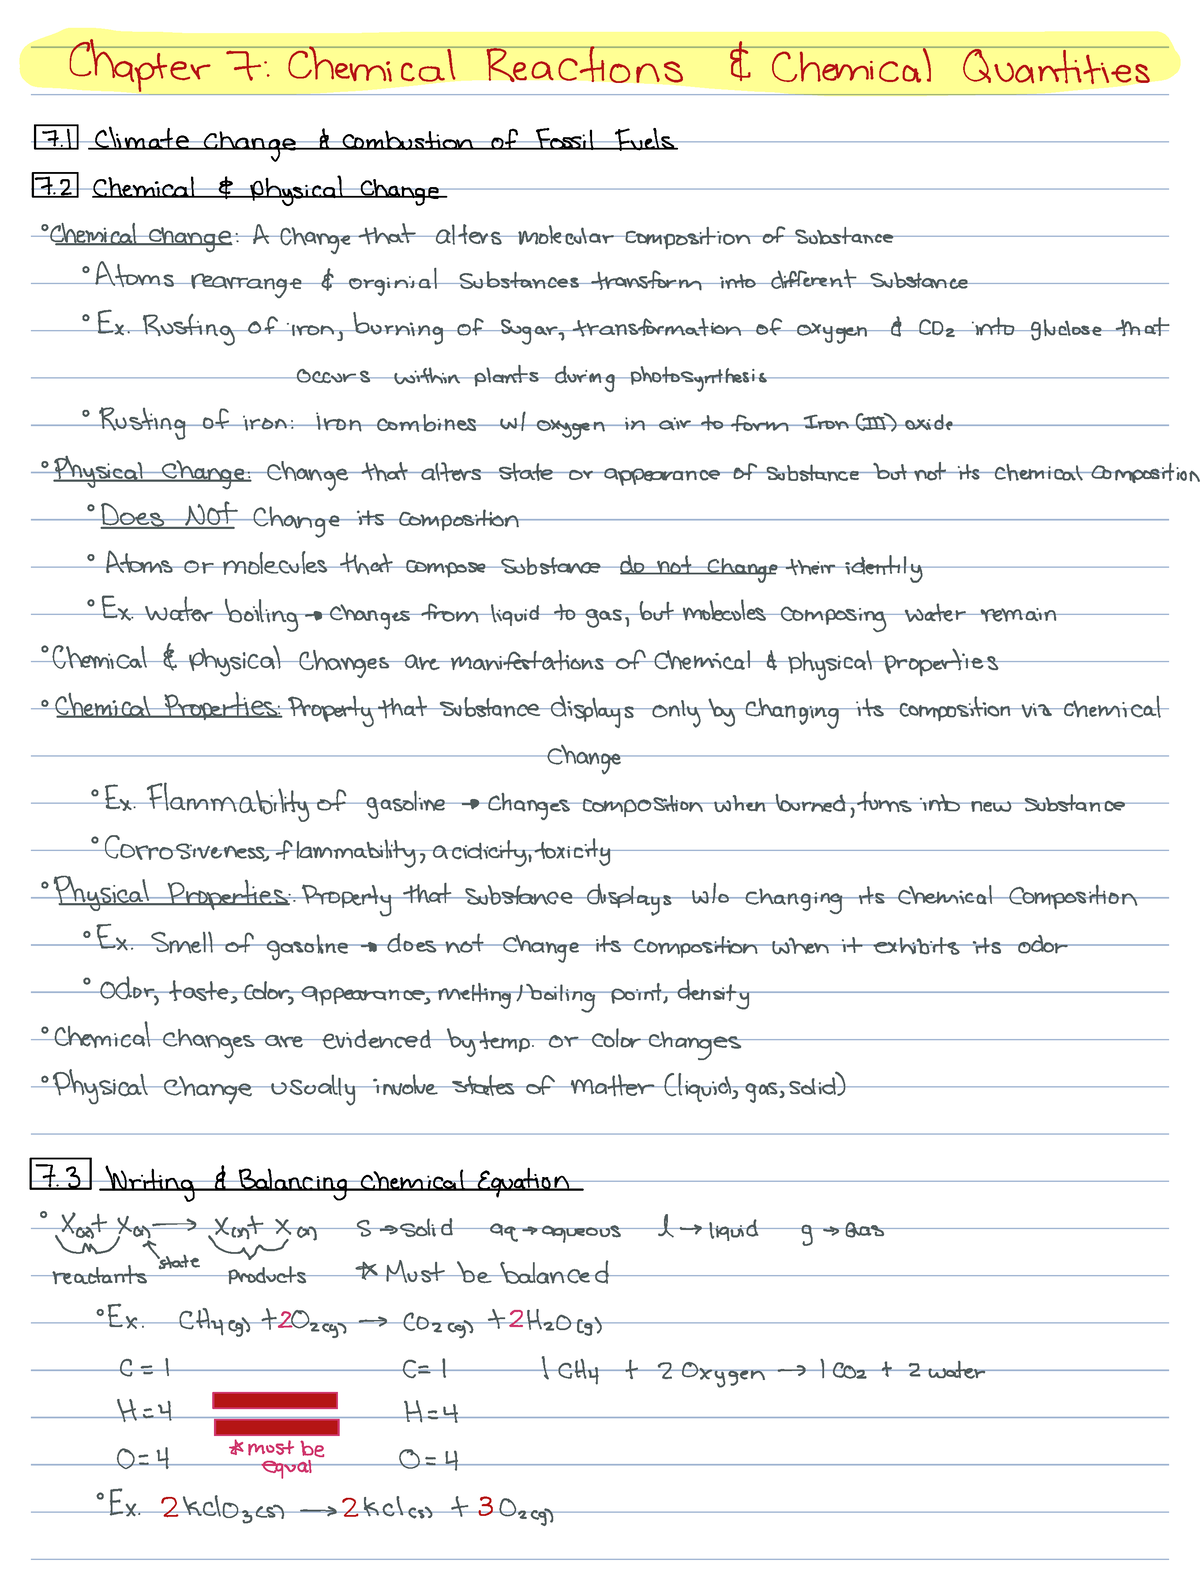 Chapter 7: Chemical Reactions & Chemical Quantities
7.1 Climate Change & Combustion of Fossil Fuels
7.2 Chemical & Physical Change
°Chemical change: A Change that alters molecular composition of Substance
°Atoms rearrange & orginial Substances transform into different Substance
°Ex. Rusting of iron, burning of Sugar, transformation of oxygen & CO2 into gluclose that
occurs within plants during photosynthesis
°Rusting of iron: iron combines w/ oxygen in air to form Iron (III) oxide
°Physical Change: Change that alters state or appearance of Substance but not its Chemical Composition
°Does NOT Change its Composition
°Atoms or molecules that compose Substance do not Change their identity
°Ex. water boiling → Changes from liquid to gas, but molecules composing water remain
°Chemical & physical Changes are manifestations of Chemical & physical properties
°Chemical Properties: Property that Substance displays only by Changing its composition via chemical
Change
°Ex. Flammability of gasoline → Changes composition when burned, turns into new Substance
°Corrosiveness, flammability, acidicity, toxicity
°Physical Properties: Property that Substance displays w/o changing its Chemical Composition
°Ex. Smell of gasoline → does not Change its composition when it exhibits its odor
°Odor, taste, color, appearance, melting/boiling point, density
°Chemical changes are evidenced by temp. or color changes
°Physical Change usually involve states of matter (liquid, gas, solid)
7.3 Writing & Balancing Chemical Equation
° X + X → X + X S → Solid aq → aqueous l → liquid g → Gas
reactants state Products * Must be balanced
°Ex. CH4(g) + 2O2(g) → CO2(g) + 2H2O(g)
C = 1 C = 1 1 CH4 + 2 Oxygen → 1 CO2 + 2 water
H = 4 H = 4
*must be
equal
O = 4 O = 4
°Ex. 2KClO3(s) → 2KCl(s) + 3O2(g)